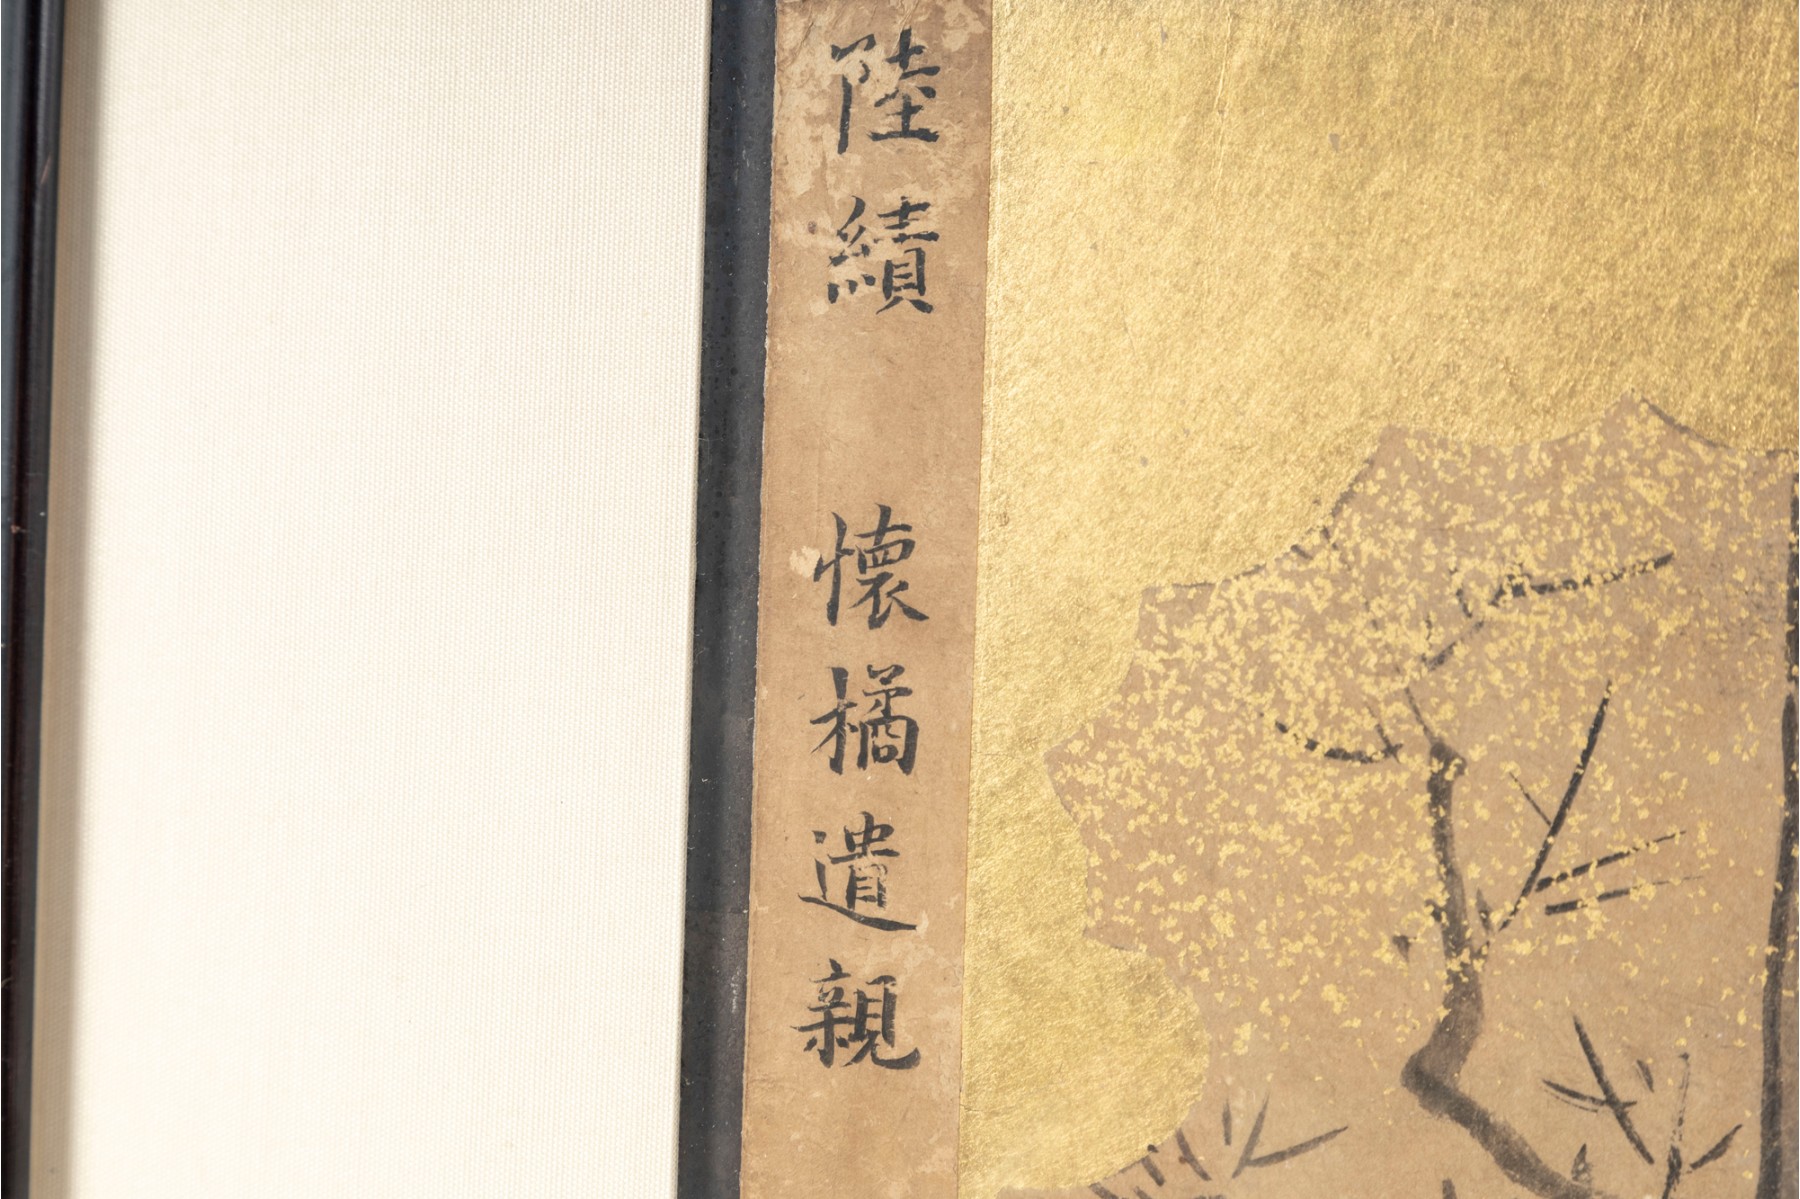 陸績　懐橘遺親